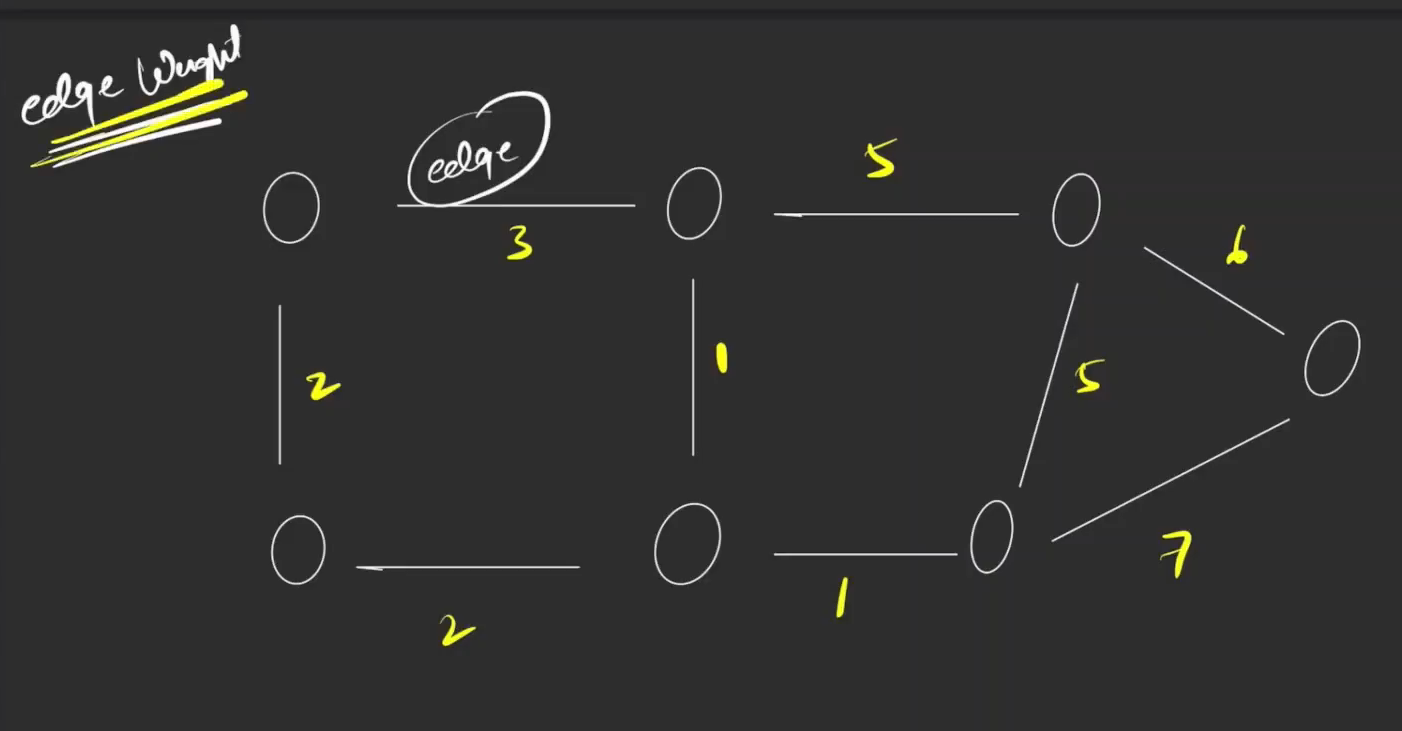 edge Weight
edge
5
3
6
2
1
5
7
1
2